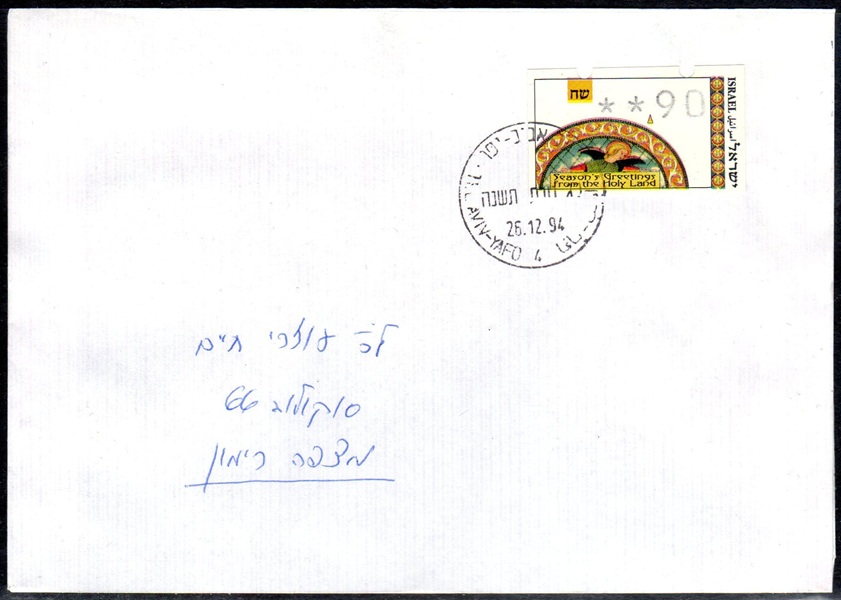 שח
**90
ISRAEL اسرائيل ישראל
Season's Greetings
from the Holy Land
תל אביב-יפו
תשנה
26.12.94
AVIV-YAFO 4
לכ' עוזרי חיים
סוקולוב 66
מצפה רימון